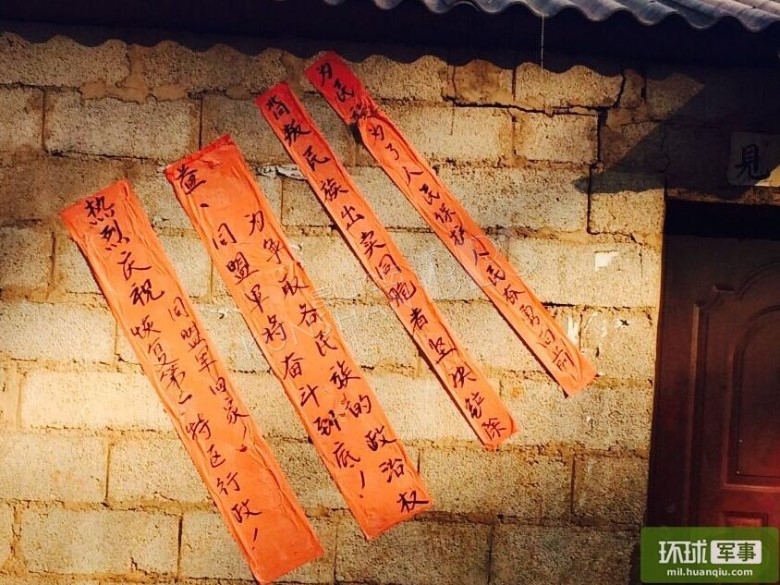 见
为民族为了人民保护人民奋勇向前
背叛民族出卖同胞者坚决铲除
为争取各民族的政治权
益、同盟军将奋斗到底！
同盟军回家！
热烈庆祝恢复第一特区行政！
环球军事
mil.huanqiu.com